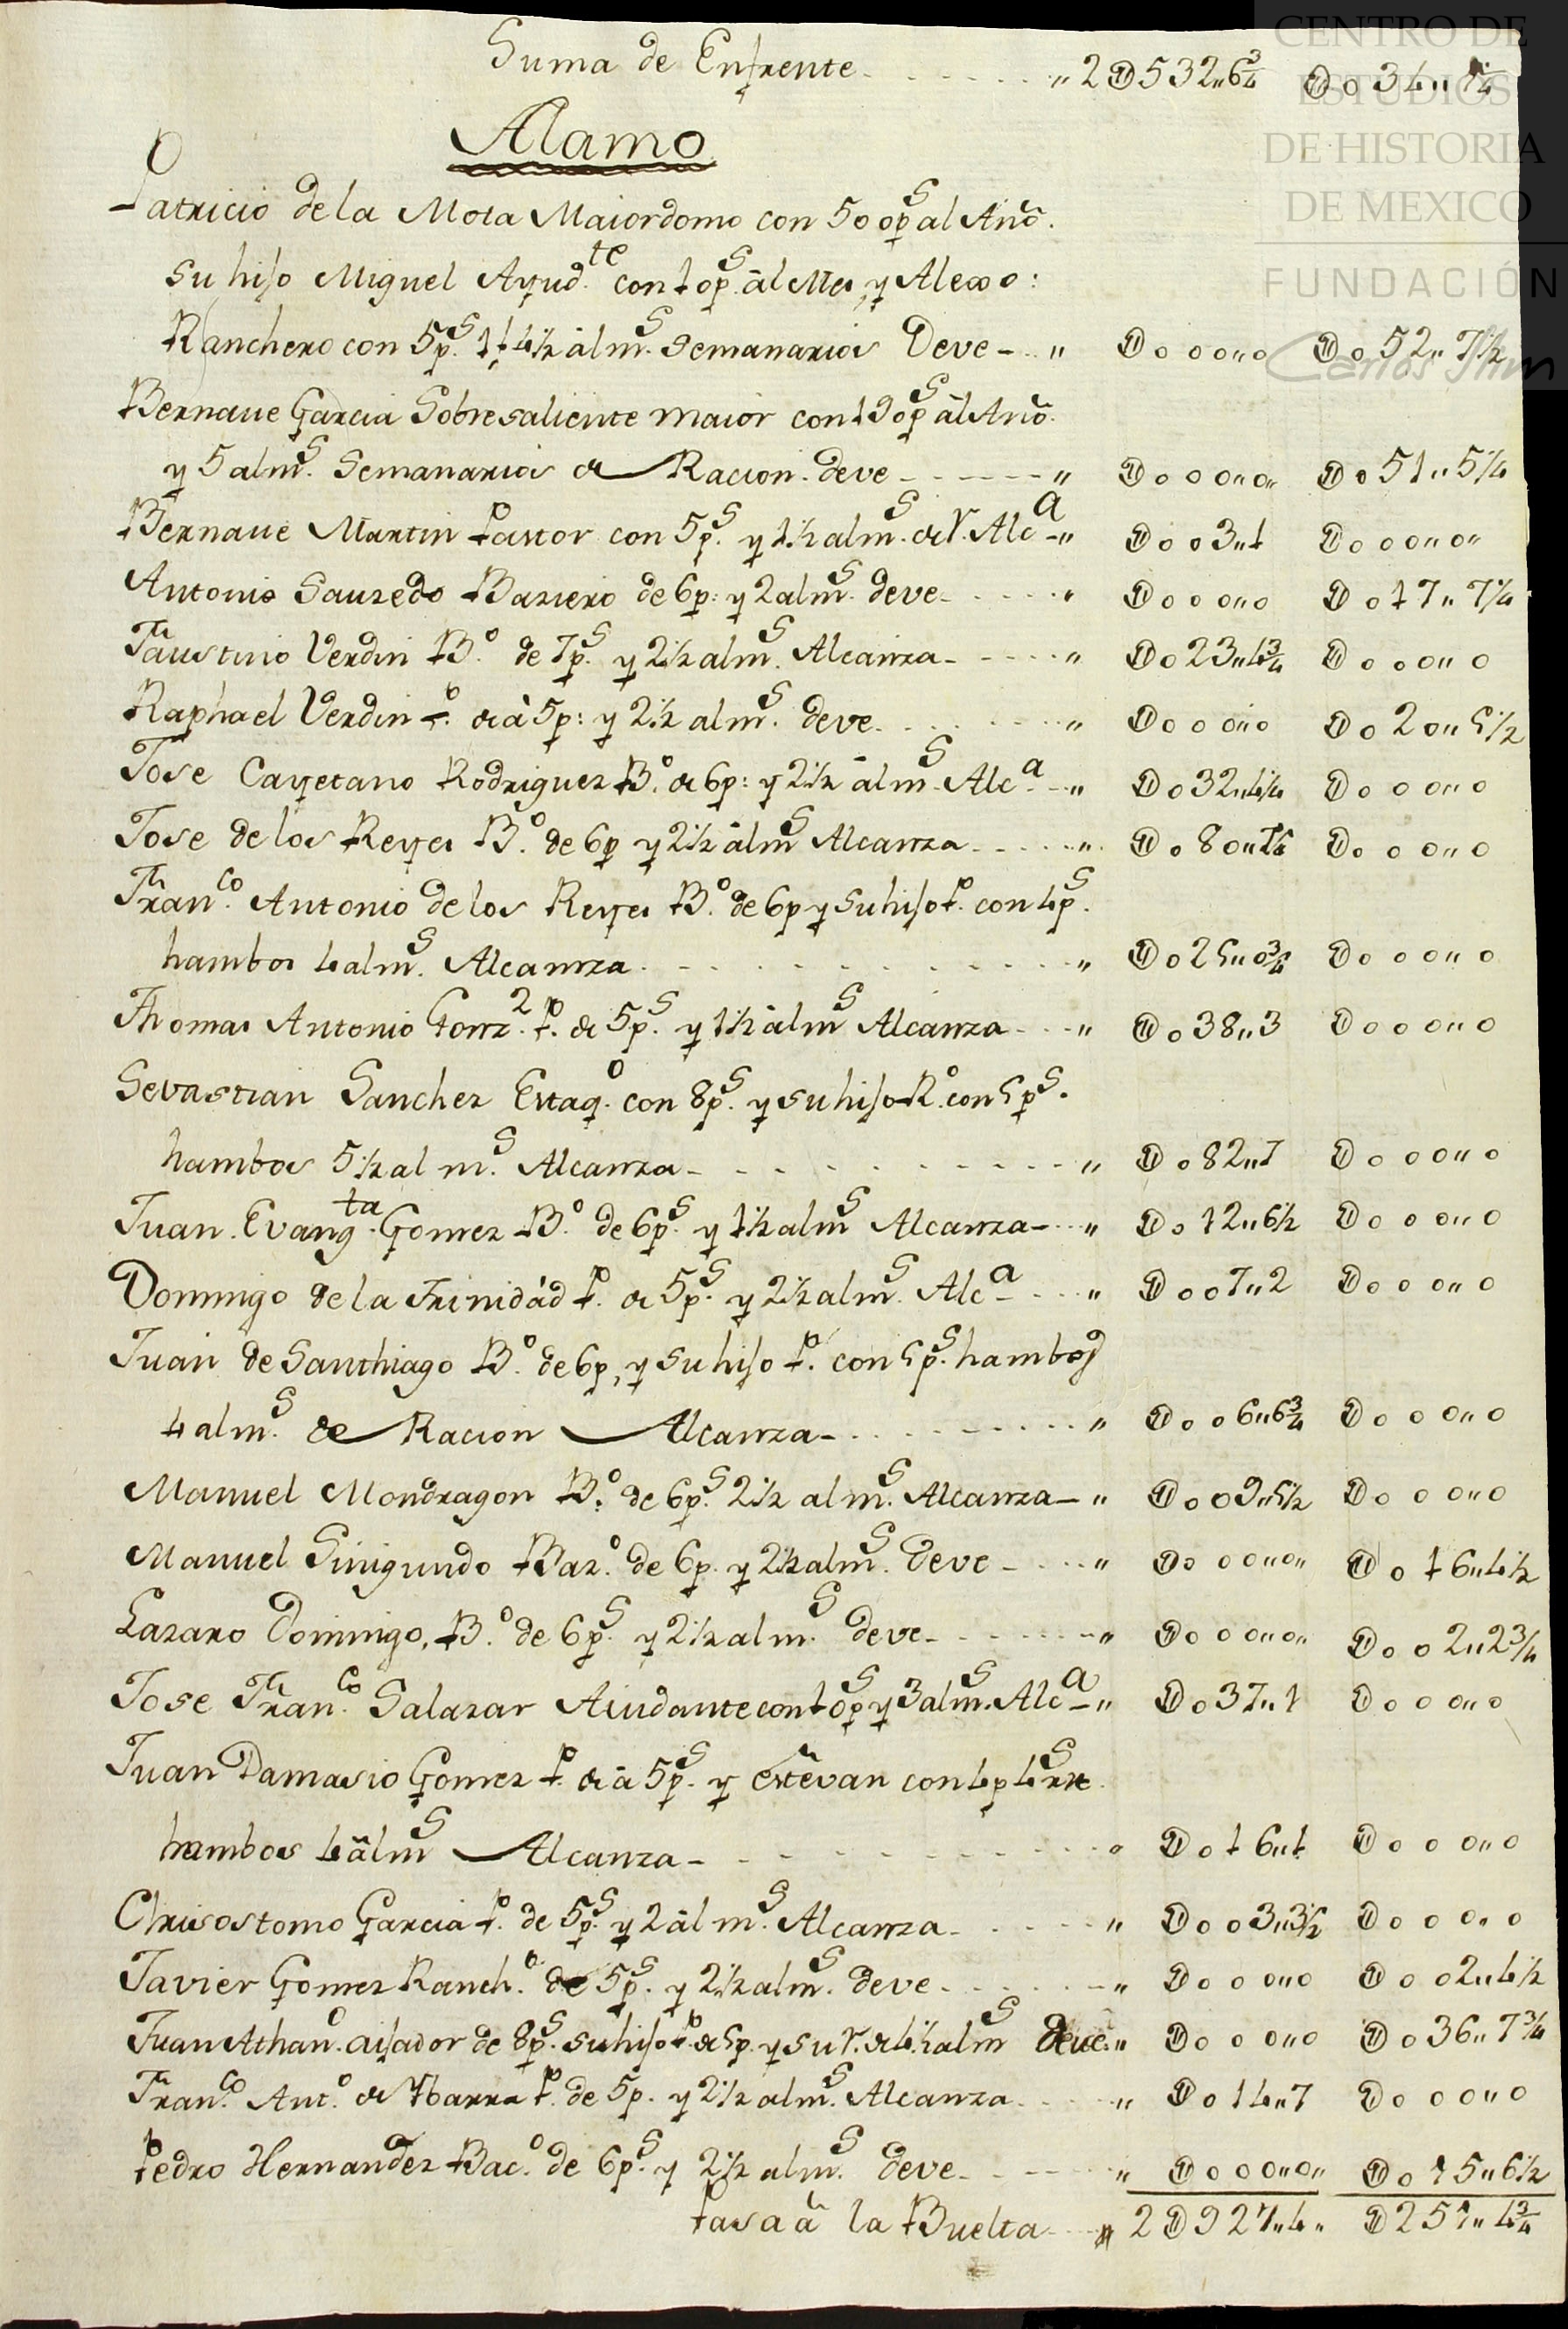 Suma de Enfrente - - - - - - - „ 2 U 532„6¾ U 0 34„ 1¼
CENTRO DE
ESTUDIOS
DE HISTORIA
DE MEXICO
FUNDACIÓN
Carlos Slim
Alamo
Patricio de la Mota Maiordomo con 500p.s al Año.
su hijo Miguel Ayud.te con 10p.s al Mes, y Alexo:
Ranchero con 5p.s 11 4½ alm.s semanarios Deve - „ U 0 0 0 0„0 U 0 52„ 7½
Bernave Garcia Sobresaliente maior con 190p.s al Año.
y 5 alm.s Semanarios de Racion. deve - - - - - „ U 0 0 0„0„ U 0 51„ 5¼
Bernave Martin Pastor con 5p.s y 1½ alm.s de r. Alc.a - „ U 0 0 3„1 U 0 0 0„0„
Antonio Sauzedo Baziero de 6p: y 2 alm.s deve - - - - „ U 0 0 0„0 U 0 17„ 7¼
Faustino Verdin B.o de 7p.s y 2½ alm.s Alcanza - - - - - „ U 0 23„4¾ U 0 0 0„0
Raphael Verdin P.o de à 5p: y 2½ alm.s deve - - - - - „ U 0 0 0„0 U 0 20„ 5½
Jose Cayetano Rodriguez B.o de 6p: y 2½ alm.s Alc.a - - „ U 0 32„4¼ U 0 0 0„0
Jose de los Reyes B.o de 6p y 2½ alm.s Alcanza - - - - - „ U 0 80„1¼ U 0 0 0„0
Fran.co Antonio de los Reyes B.o de 6p y su hijo P.o con 4p.s
hambos 4 alm.s Alcanza - - - - - - - - - - „ U 0 25„0¾ U 0 0 0„0
Thomas Antonio Gonz.z P.o de 5p.s y 1½ alm.s Alcanza - - - „ U 0 38„3 U 0 0 0„0
Sevastian Sanchez Estaq.o con 8p.s y su hijo R.o con 5p.s.
hambos 5½ alm.s Alcanza - - - - - - - - - - „ U 0 82„7 U 0 0 0„0
Juan Evang.ta Gomez B.o de 6p.s y 1½ alm.s Alcanza - - - „ U 0 12„6½ U 0 0 0„0
Domingo de la Trinidad P.o de 5p.s y 2½ alm.s Alc.a - - - „ U 0 0 7„2 U 0 0 0„0
Juan de Santhiago B.o de 6p, y su hijo P.o con 5p.s hambos
4 alm.s de Racion Alcanza - - - - - - - - „ U 0 0 6„6¾ U 0 0 0„0
Manuel Mondragon B.o de 6p.s 2½ alm.s Alcanza - „ U 0 0 9„5½ U 0 0 0„0
Manuel Sinigundo Baz.o de 6p. y 2½ alm.s deve - - - - „ U 0 0 0„0„ U 0 16„4½
Lazaro Domingo, B.o de 6p.s y 2½ alm.s deve - - - - - „ U 0 0 0„0„ U 0 0 2„2¾
Jose Fran.co Salazar Aiudante con 10p.s y 3 alm.s Alc.a - „ U 0 37„1 U 0 0 0„0
Juan Damasio Gomez P.o de à 5p.s y Estevan con 4p
hambos 4 alm.s Alcanza - - - - - - - - - - „ U 0 16„1 U 0 0 0„0
Chrisostomo Garcia P.o de 5p.s y 2 alm.s Alcanza - - - - - „ U 0 0 3„3½ U 0 0 0„0
Javier Gomez Ranch.o de 5p.s y 2½ alm.s deve - - - - - „ U 0 0 0„0 U 0 0 2„4½
Juan Athan.o aijador de 8p.s su hijo P.o de 5p. y su r. de 4½ alm.s deve „ U 0 0 0„0 U 0 36„ 7¾
Fran.co Ant.o de Ybarra P.o de 5p. y 2½ alm.s Alcanza - - - „ U 0 14„7 U 0 0 0„0
Pedro Hernandez Bac.o de 6p.s y 2½ alm.s deve - - - - - „ U 0 0 0„0„ U 0 15„6½
Pasa a la Buelta - - „ 2 U 927„4„ U 251„ 4¾